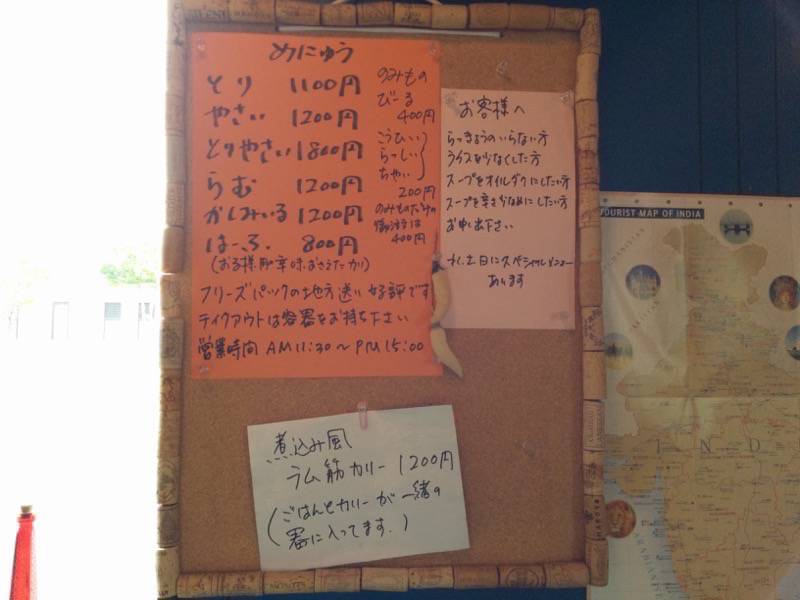 めにゅう
とり 1100円
やさい 1200円
とりやさい 1800円
らむ 1200円
かしみいる 1200円
はーふ 800円
のみもの
びーる
400円
こうひい
らっしい
ちゃい
200円
のみものだけの
御注文は
400円
フリーズパックの地方送り好評です
テイクアウトは容器をお持ち下さい
営業時間 AM11:30〜PM15:00
お客様へ
らっきょうのいらない方
ライスを少なくした方
スープをオイルダクにしたい方
スープを辛さ少なめにしたい方
お申し出下さい
土日にスペシャルメニュー
あります
煮込み風
ラム筋カリー 1200円
(ごはんとカリーが一緒の
器に入ってます.)
TOURIST MAP OF INDIA
I N D